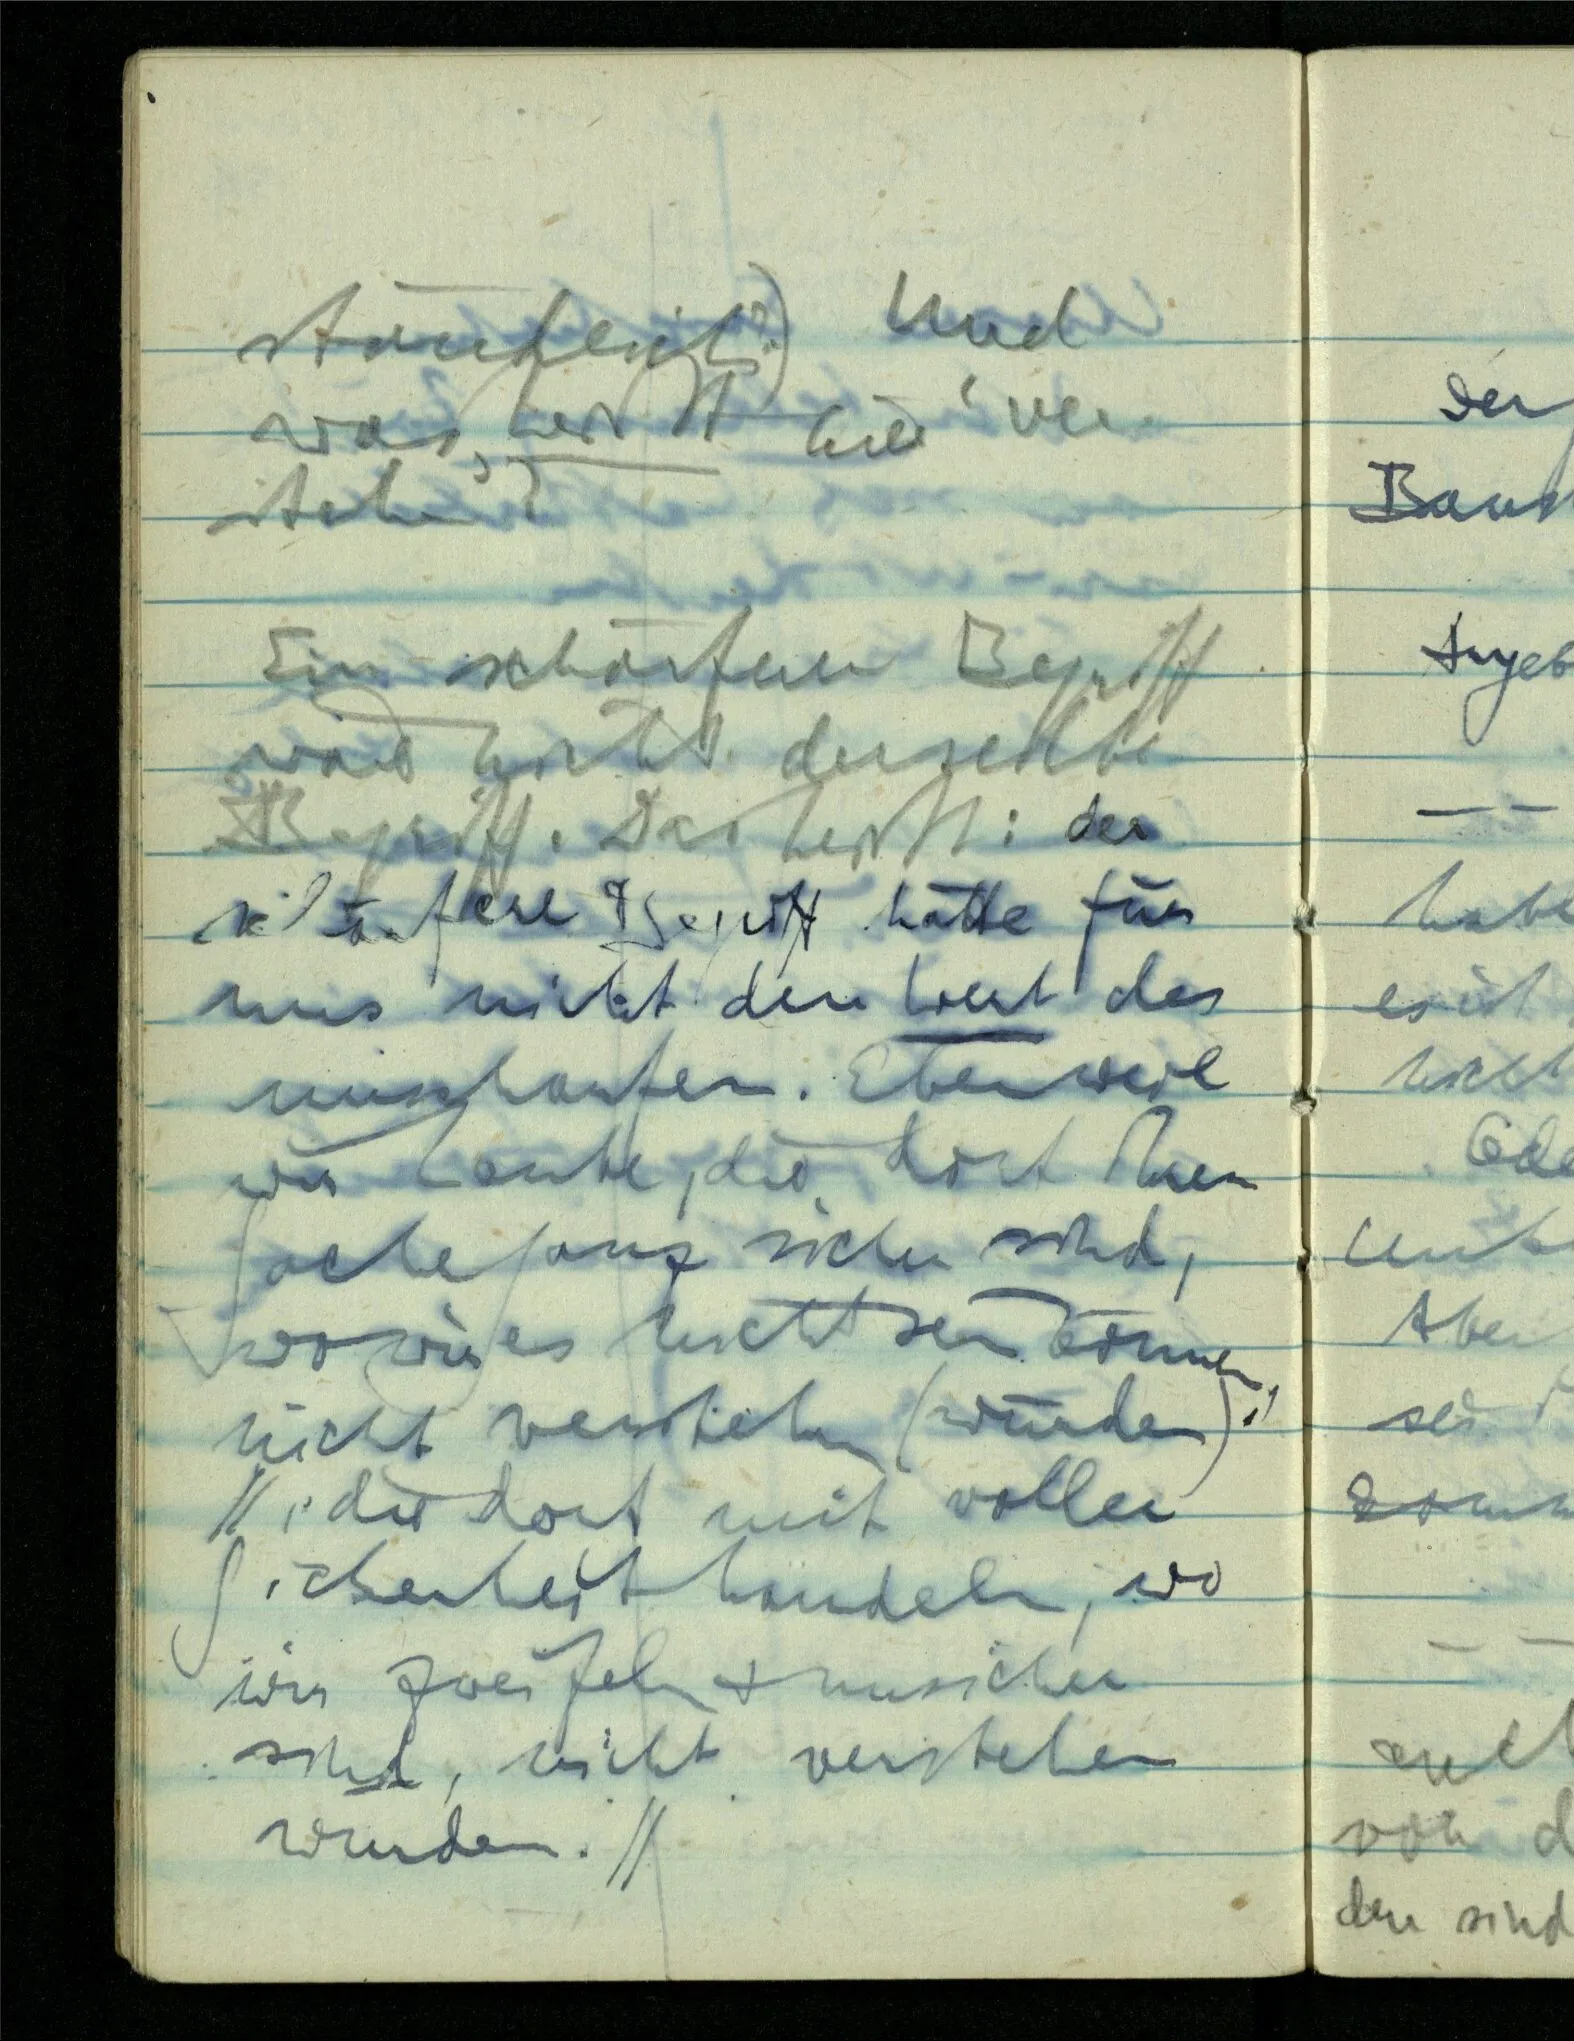 ständlich?) Und
was heißt hier 'ver-
stehen'?
Ein schärferer Begriff
wäre nicht derselbe
Begriff. Das heißt: der
schärfere Begriff hätte für
uns nicht den Wert des
unscharfen. Eben weil
wir Leute, die dort ihrer
Sache ganz sicher sind,
wo wir es nicht sein können,
nicht verstehen (würden)!
// , die dort mit voller
Sicherheit handeln, wo
wir zweifeln + unsicher
sind, nicht verstehen
würden. //
habe
es ist
Aber
sei
von d
den sind